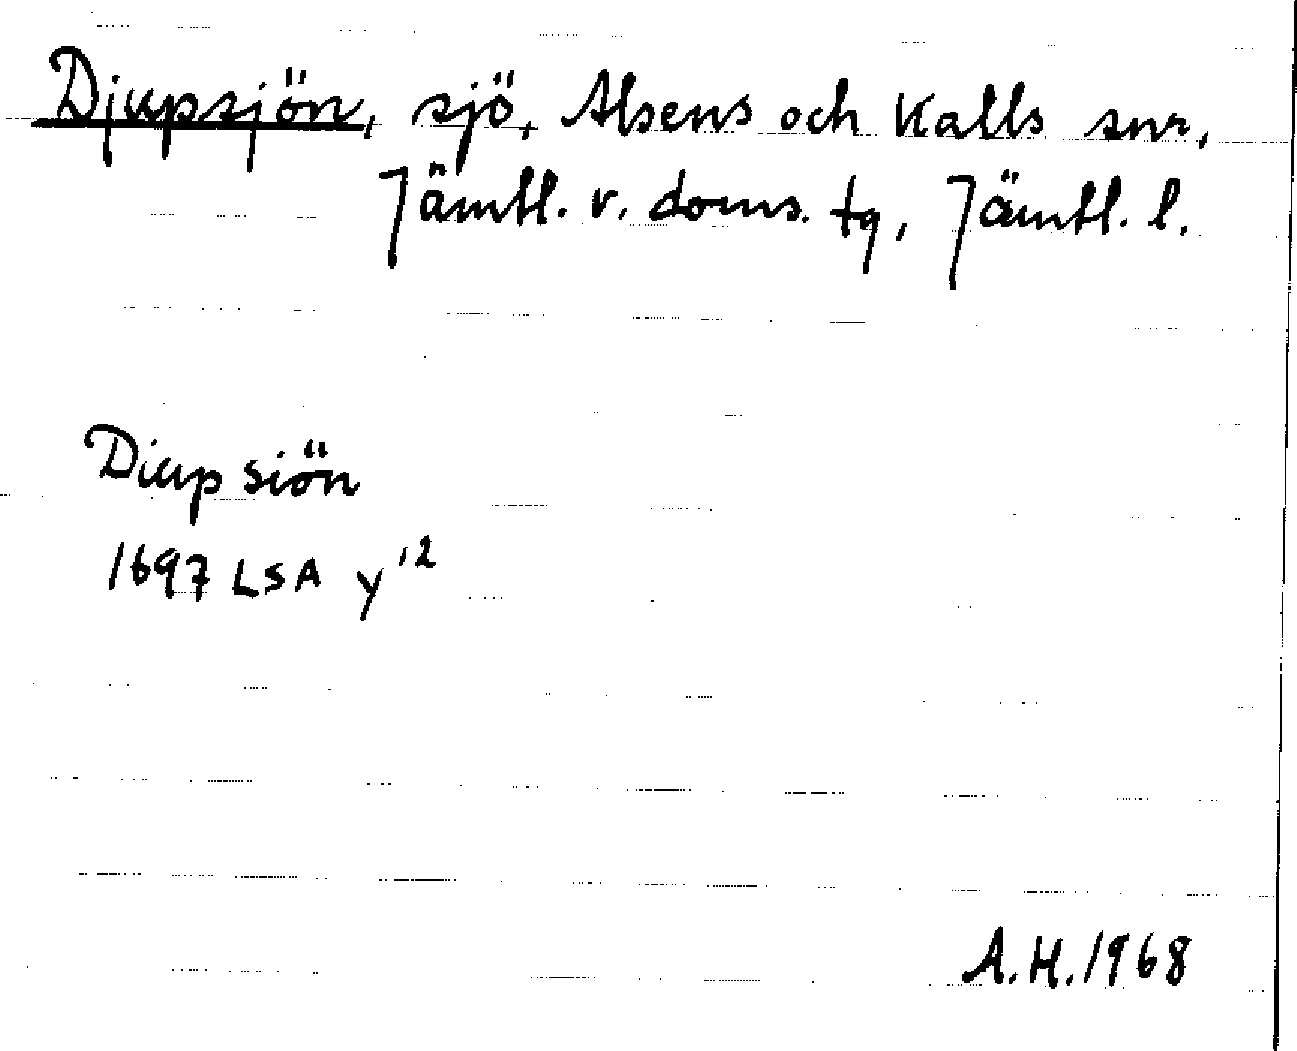 Djupsjön, sjö, Alsens och Kalls snr,
Jämtl. v. doms. tg, Jämtl. l.
Diup siön
1697 LSA y'2
A.H. 1968